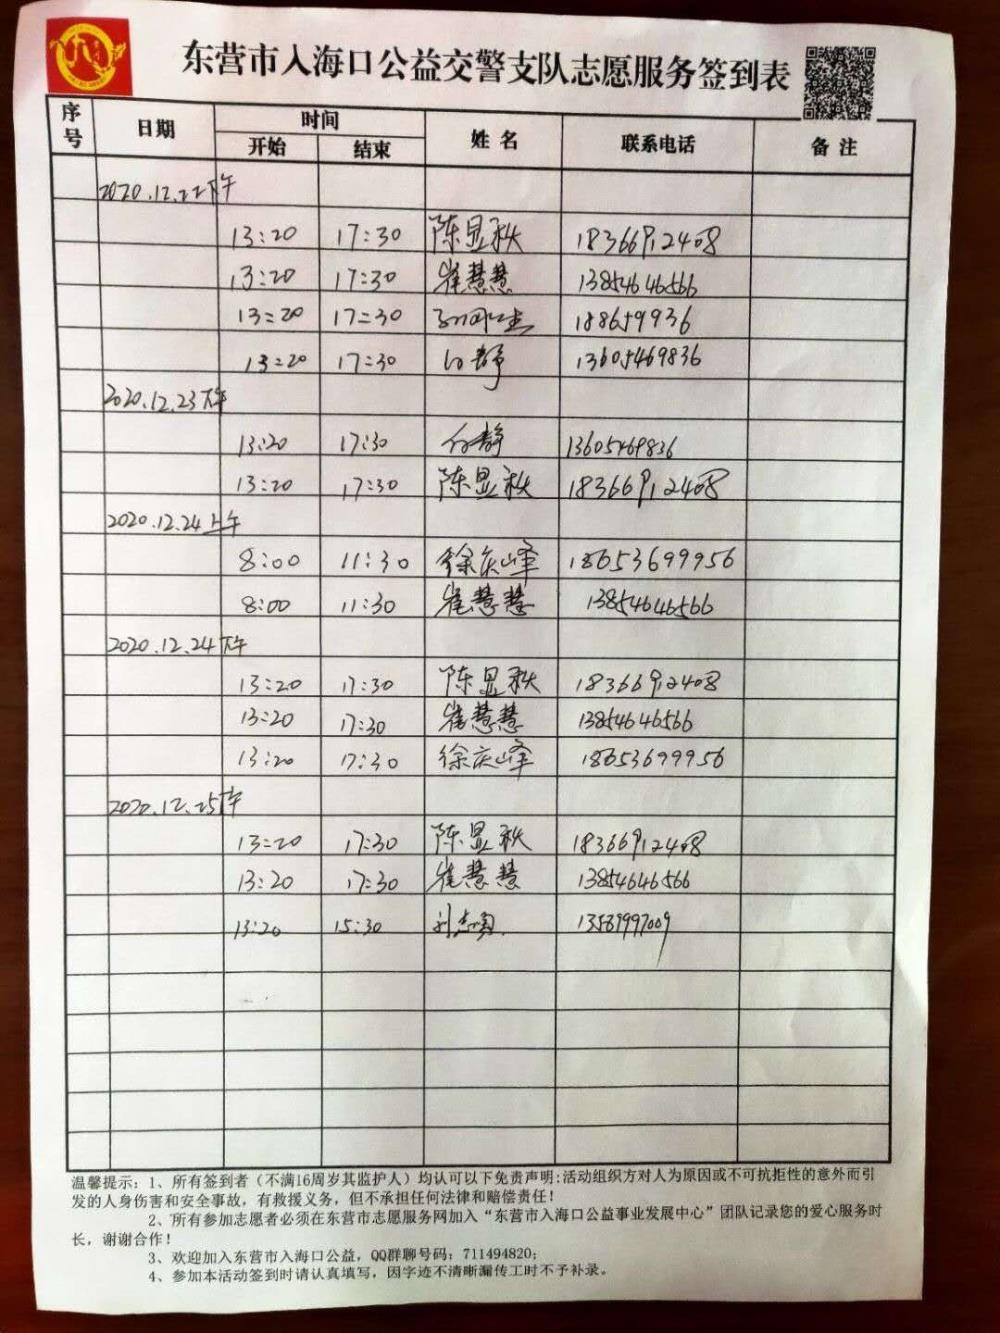 东营市入海口公益交警支队志愿服务签到表
序号 日期 时间 开始 结束 姓名 联系电话 备注
2020.12.22下午
13:20 17:30 陈显秋 18366912408
13:20 17:30 崔慧慧 13854646566
13:20 17:30 188659936
13:20 17:30 白静 13605469836
2020.12.23下午
13:20 17:30 白静 13605469836
13:20 17:30 陈显秋 18366912408
2020.12.24上午
8:00 11:30 徐庆峰 18653699956
8:00 11:30 崔慧慧 13854646566
2020.12.24下午
13:20 17:30 陈显秋 18366912408
13:20 17:30 崔慧慧 13854646566
13:20 17:30 徐庆峰 18653699956
2020.12.25下午
13:20 17:30 陈显秋 18366912408
13:20 17:30 崔慧慧 13854646566
13:20 15:30 刘志勇
温馨提示：1、所有签到者（不满16周岁其监护人）均认可以下免责声明:活动组织方对人为原因或不可抗拒性的意外而引
发的人身伤害和安全事故，有救援义务，但不承担任何法律和赔偿责任！
2、所有参加志愿者必须在东营市志愿服务网加入“东营市入海口公益事业发展中心”团队记录您的爱心服务时
长，谢谢合作！
3、欢迎加入东营市入海口公益，QQ群聊号码：711494820；
4、参加本活动签到时请认真填写，因字迹不清晰漏传工时不予补录。